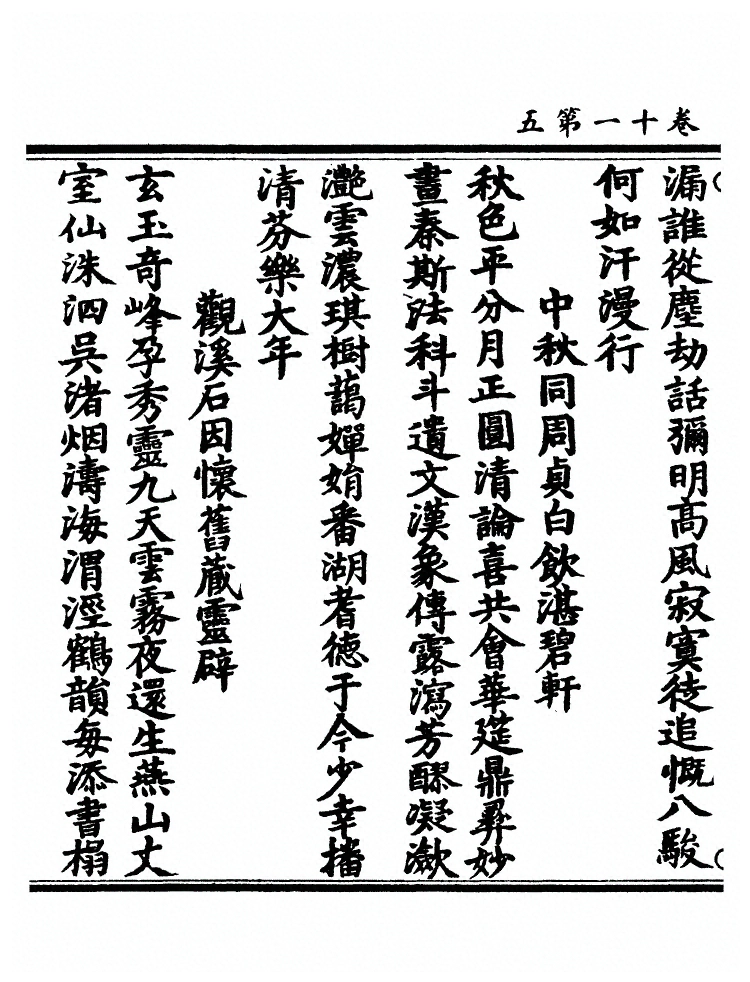 卷十一第五
漏誰從塵劫話彌明高風寂寞徒追慨八駿
何如汗漫行
中秋同周貞白飲湛碧軒
秋色平分月正圓清論喜共會華筵鼎彞妙
畫秦斯法科斗遺文漢象傳露瀉芳醪凝瀲
灧雲濃琪樹藹嬋娟番湖耆德于今少幸播
清芬樂大年
觀溪石因懷舊藏靈壁
玄玉奇峰孕秀靈九天雲霧夜還生燕山丈
室仙洙泗吳渚烟濤海渭涇鶴韻每添書榻